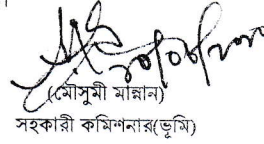 (মৌসুমী মান্নান)
সহকারী কমিশনার(ভূমি)